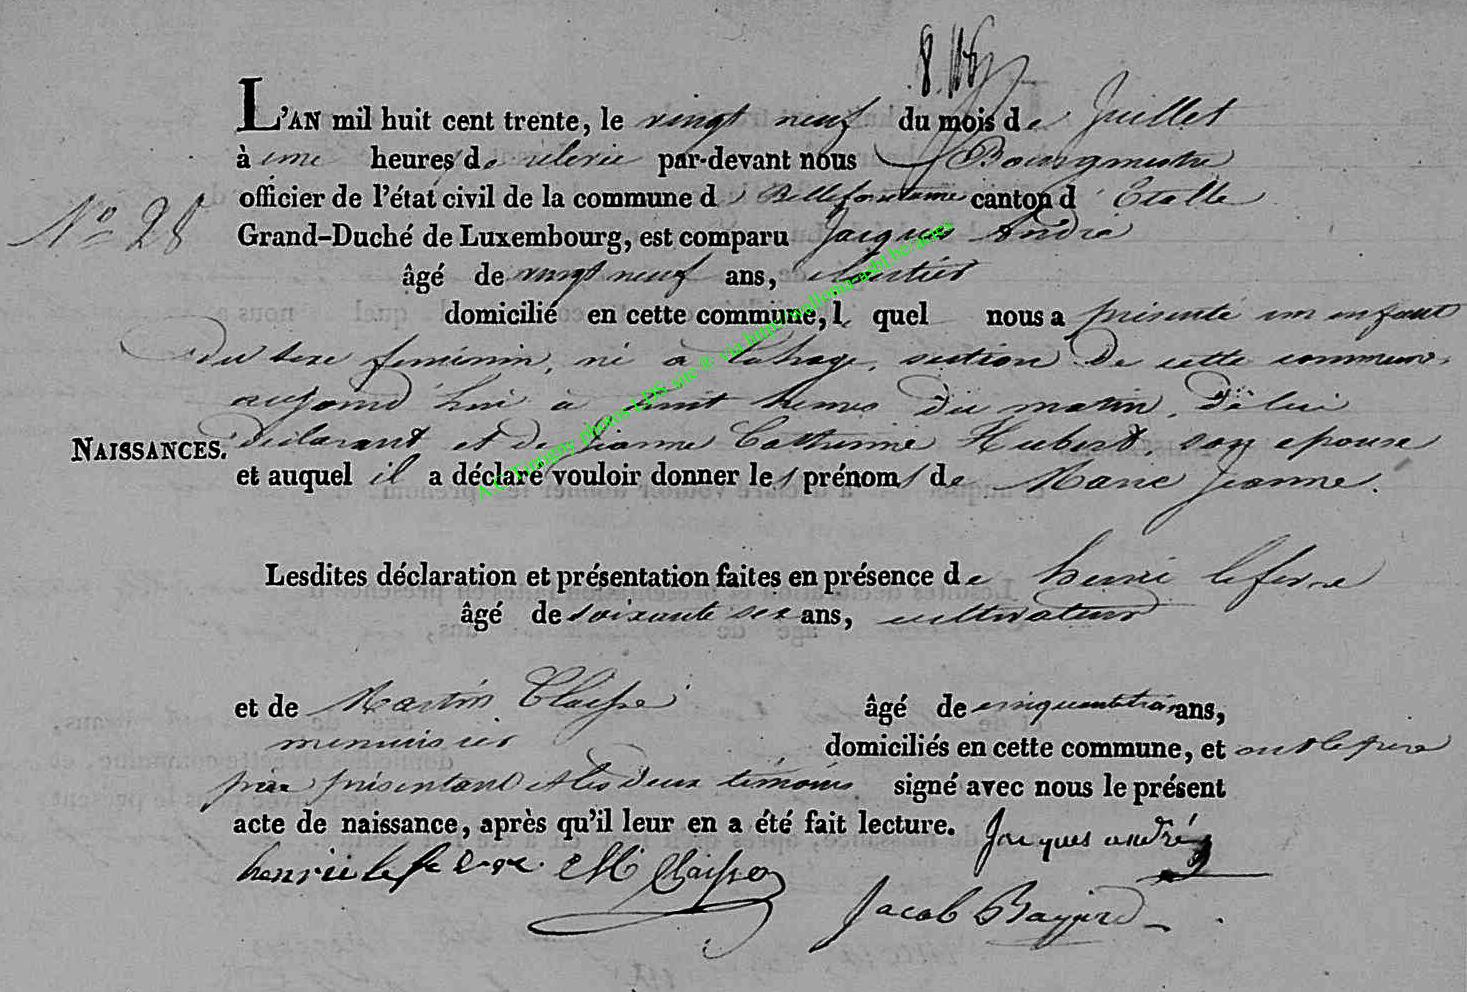 L'AN mil huit cent trente, le vingt neuf du mois de Juillet
à une heures de relevée par-devant nous Bourgmestre
officier de l'état civil de la commune de Bellefontaine canton d'Etalle
Nº 28
Grand-Duché de Luxembourg, est comparu Jacques André
âgé de vingt neuf ans,
domicilié en cette commune, le quel nous a présenté un enfant
du sexe feminin, né à Lahage, section de cette commune
aujourd'hui à huit heures du matin, de lui
déclarant et de Jeanne Catherine Hubert, son epouse
NAISSANCES.
et auquel il a déclaré vouloir donner les prénoms de Marie Jeanne.
Lesdites déclaration et présentation faites en présence de henri lefevre
âgé de soixante six ans, cultivateur
et de Martin Claisse âgé de cinquante trois ans,
menuisier domiciliés en cette commune, et ont le pere
présentant et les deux témoins signé avec nous le présent
acte de naissance, après qu'il leur en a été fait lecture. Jacques andré
henri le fevre. M Claisse
Jacob Bayard
A.C. Tintigny photos LDS site ® via http://wallonia-asbl.be/actes